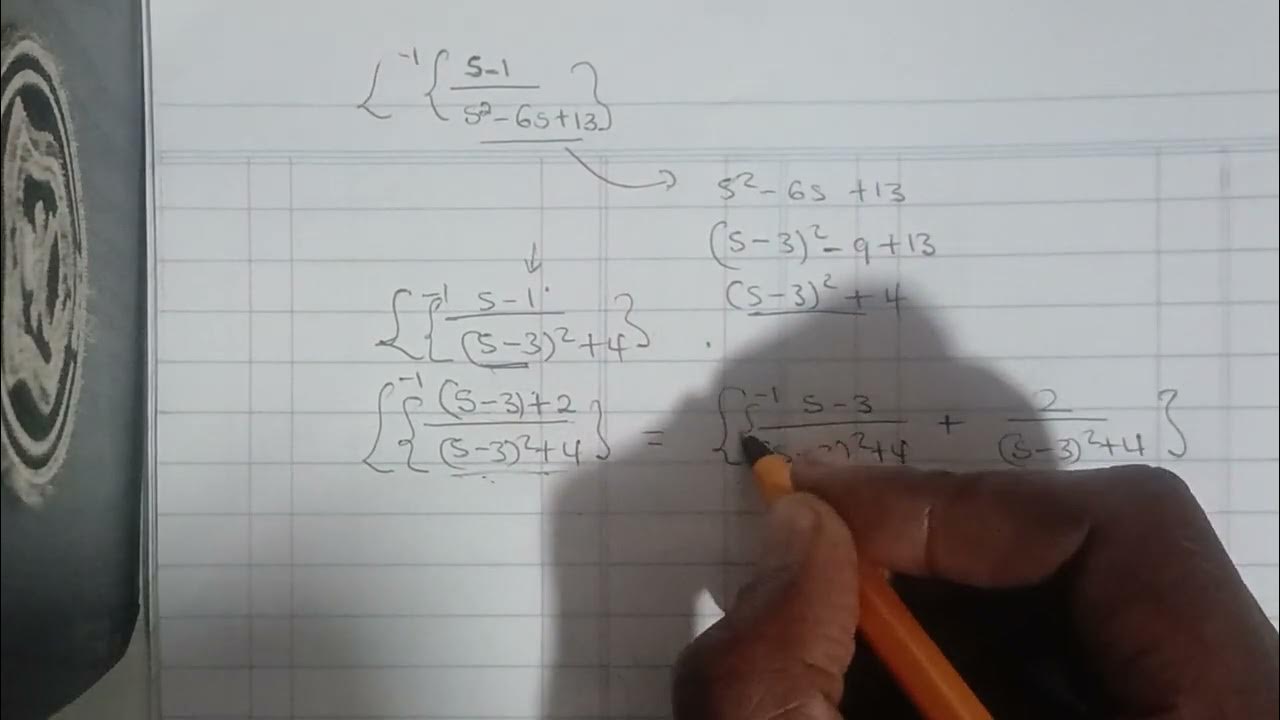 ℒ⁻¹{ (s-1)/(s²-6s+13) }
s²-6s+13
(s-3)²-9+13
(s-3)²+4
ℒ⁻¹{ (s-1)/((s-3)²+4) }
ℒ⁻¹{ ((s-3)+2)/((s-3)²+4) } = ℒ⁻¹{ (s-3)/((s-3)²+4) + 2/((s-3)²+4) }